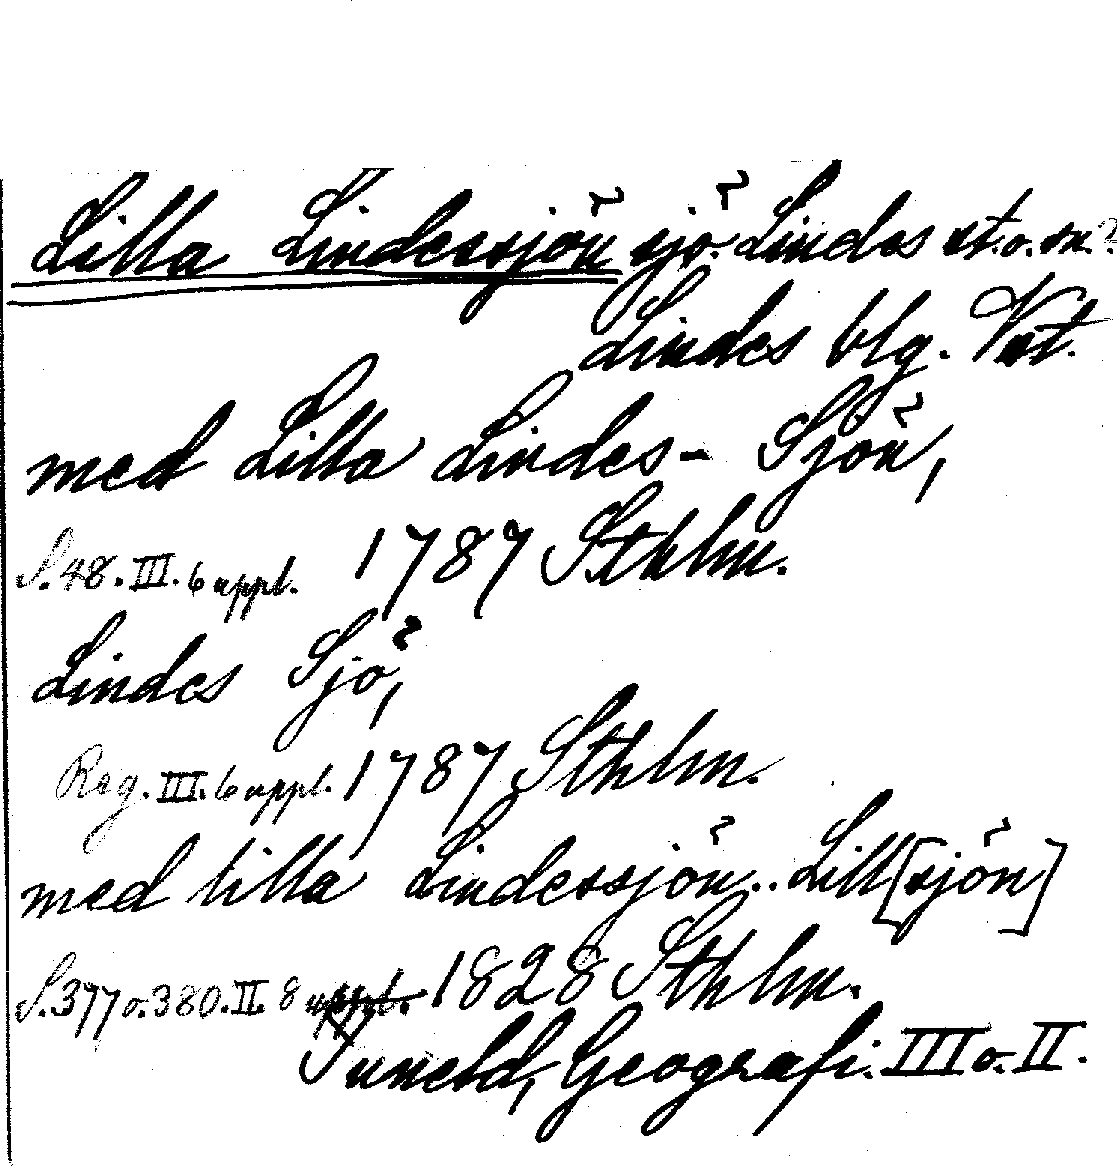 Lilla Lindessjön sjö. Lindes st. o. sn.?
Lindes blg. Vst.
med Lilla Lindes- Sjön,
S. 48. III. 6 uppl. 1787 Sthlm.
Lindes Sjö,
Reg. III. 6 uppl. 1787 Sthlm.
med lilla Lindessjön.. Lill[sjön]
S. 377 o. 380. II. 8 uppl. 1828 Sthlm.
Tuneld, Geografi. III o. II.